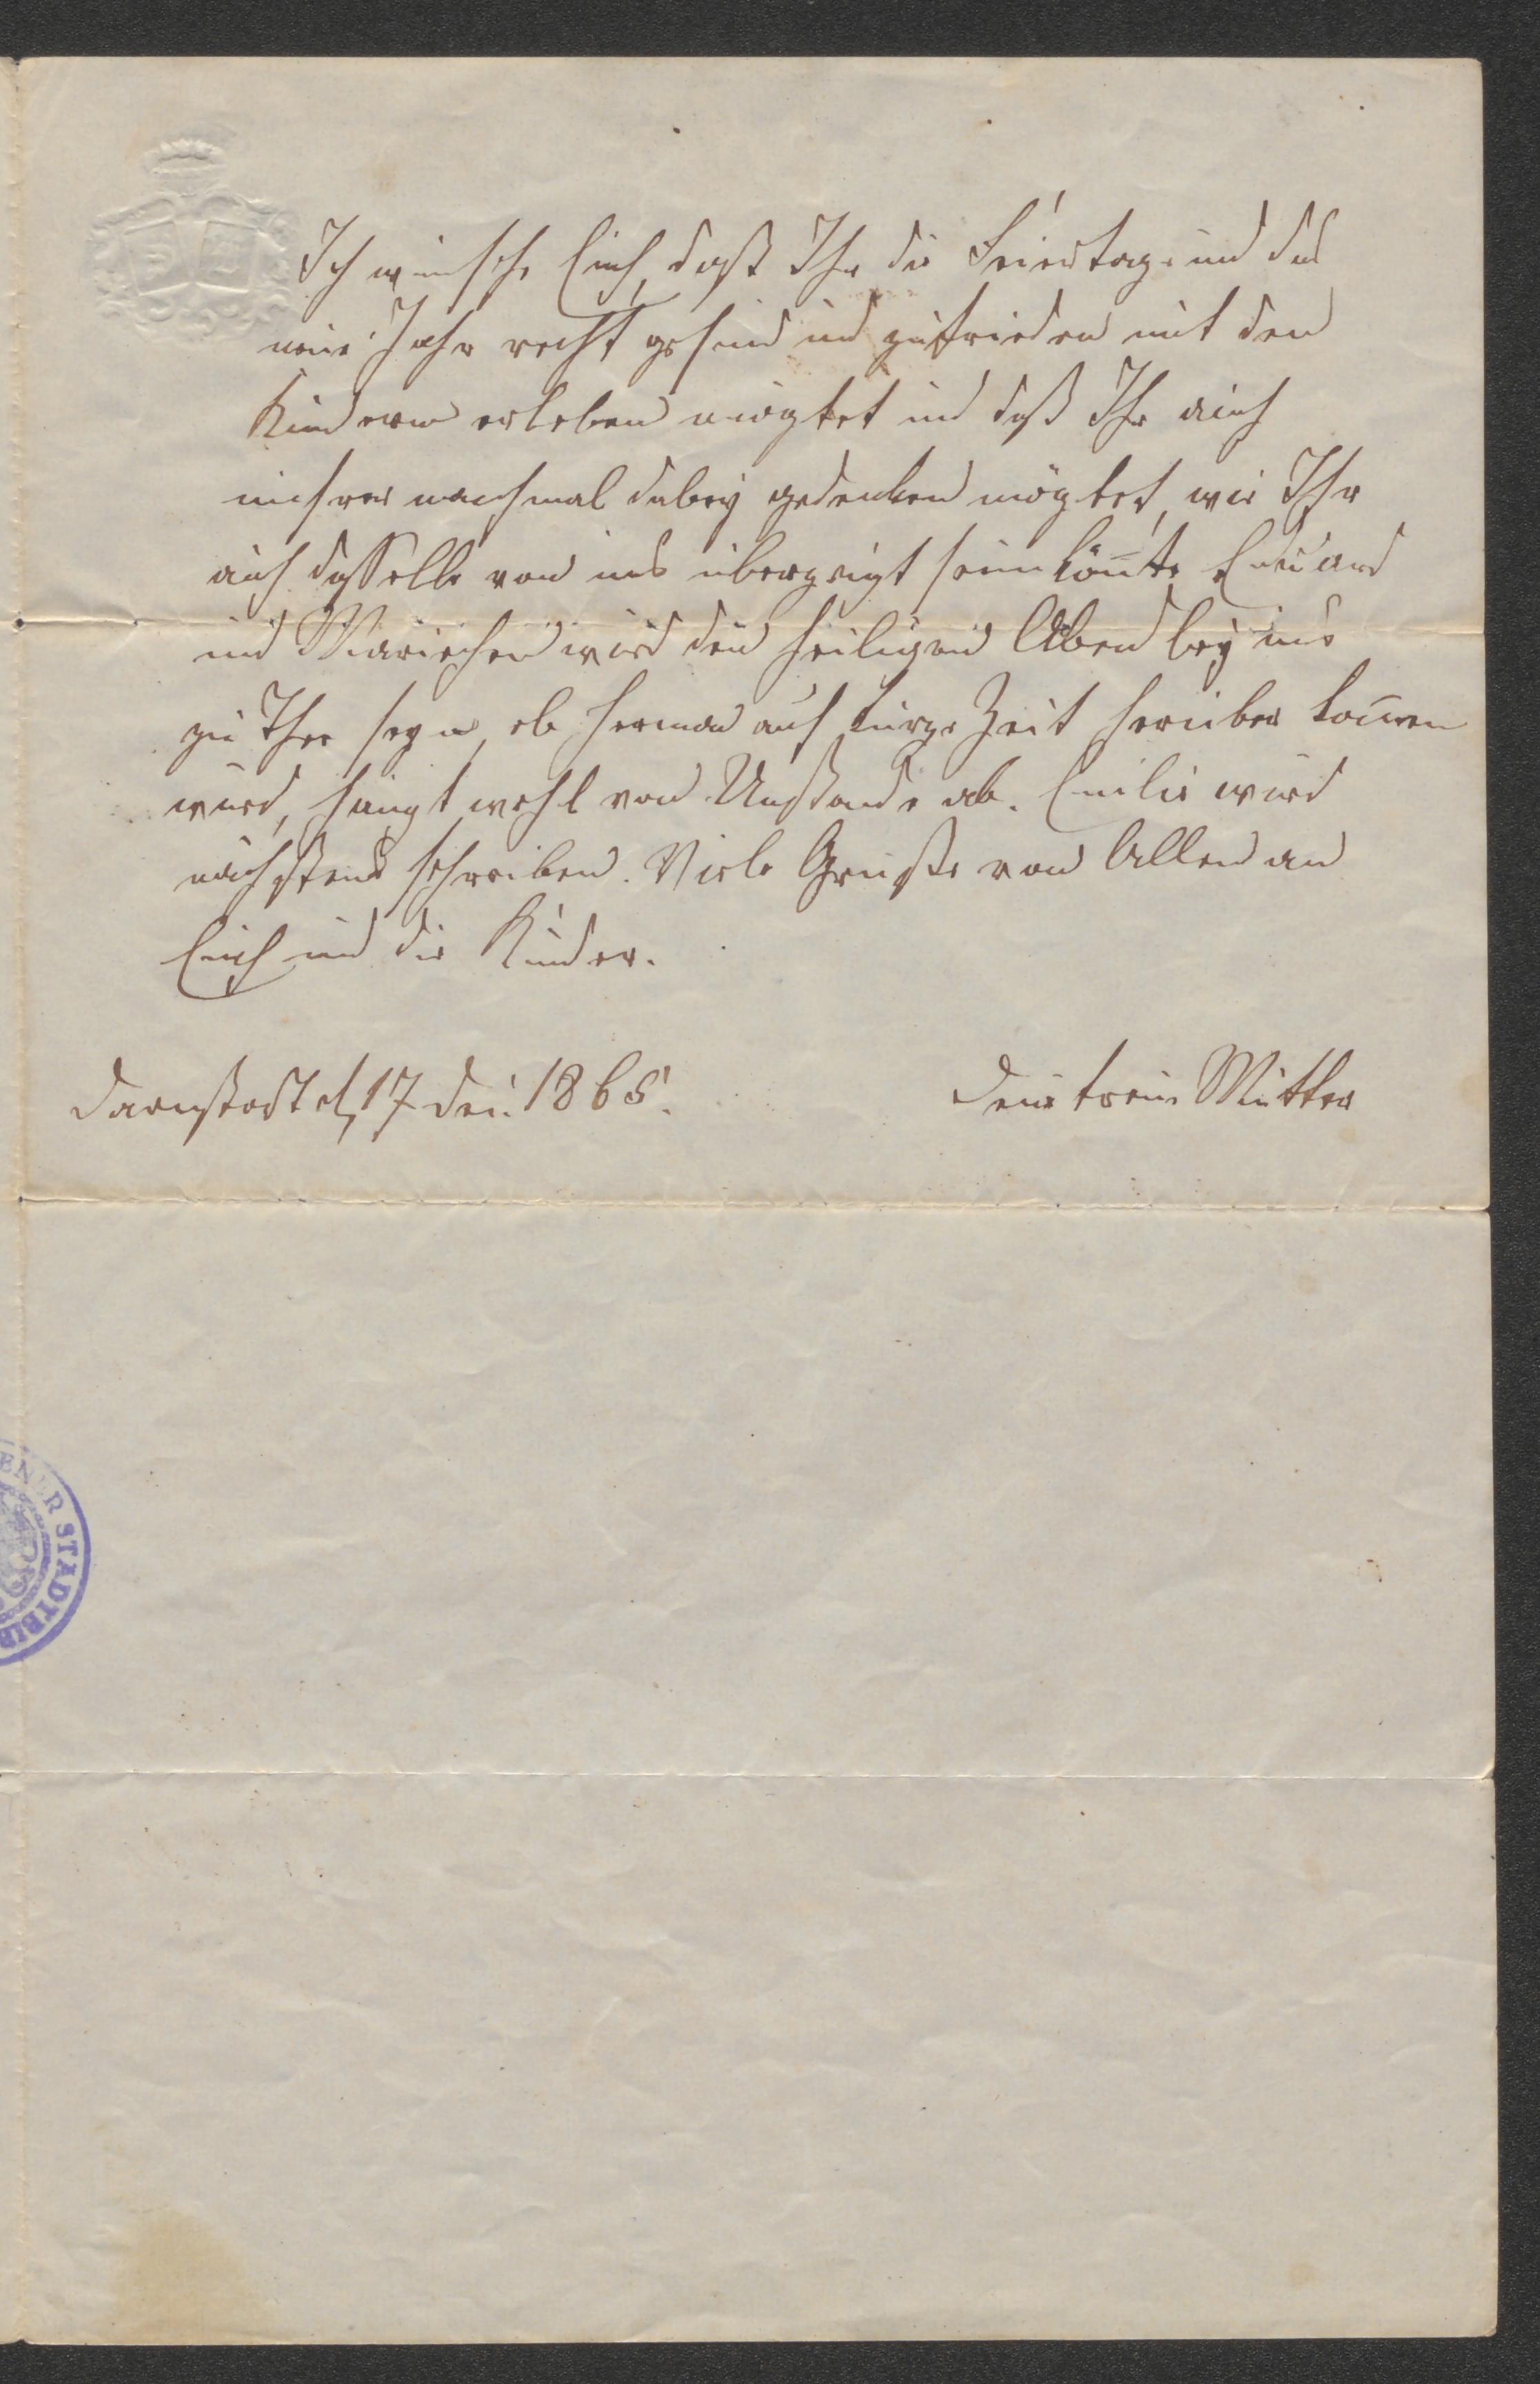 Ich wünsche Euch, daß Ihr die Feiertage und das
neue Jahr recht gesund und zufrieden mit den
Kindern erleben mögtet und daß Ihr auch
unsrer manchmal dabey gedenken mögtet, wie Ihr
auch dasselbe von uns überzeigt sein könnte. Eduard
und Mariechen wird den heiligen Abend bey uns
zu Thee seyn, ob Herman auf kurze Zeit herüber kom̄en
wird, hängt wohl von Umstände ab. Emilie wird
nächstens schreiben. Viele Grüße von Allen an
Euch und die Kinder.
Darmstadt d, 17 Dez. 1865.
Deine treue Mutter
ENER STADTBIB